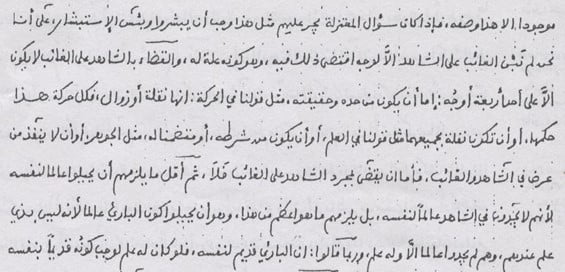 موجودا الا هذا وصفه، فإذا كان سؤال المعتزلة يجر عليهم مثل هذا وجب أن يبشروا وبئس الإستبشار، على أننا
نحن لم نبن الغائب على الشاهد إلّا لوجه اقتضى ذلك فيه، وهو كونه علة له، والقضاء بالشاهد على الغائب لا يكون
إلّا على أحد أربعة أوجه: إما أن يكون من حده وحقيقته، مثل قولنا في الحركة: انها نقلة أو زوال، فكل حركة هذا
حكمها. أو ان تكون نقلة بجميعها مثل قولنا في العلم، أو أن يكون من شرطه، أو متضمنا له، مثل الجوهر أو أن لا ينفذ من
عرض في الشاهد والغائب. فأما ان يقضى بمجرد الشاهد على الغائب فلا، ثم أقل ما يلزمهم أن يحيلوا عالما لنفسه
لأنهم لا يجدونا في الشاهد عالما لنفسه، بل يلزمهم ما هو أعظم من هذا. وهو أن يحيلوا كون البارئ عالما لأنه ليس بذي
علم عندهم، وهم لم يجدوا عالما الّا وله علم، وربما قالوا: ان البارئ قديم لنفسه، فلو كان له علم لوجب كونه قديما بنفسه